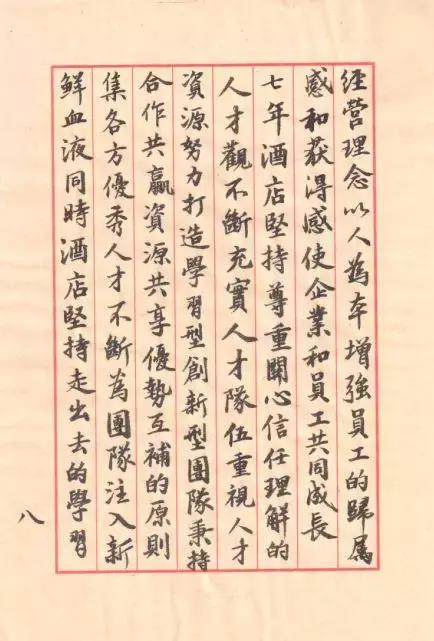 經營理念以人為本增強員工的歸属
感和获得感使企業和員工共同成長
七年酒店堅持尊重關心信任理解的
人才觀不斷充實人才隊伍重視人才
資源努力打造學習型創新型團隊秉持
合作共贏資源共享優勢互補的原則
集各方優秀人才不斷為團隊注入新
鮮血液同時酒店堅持走出去的學習
八